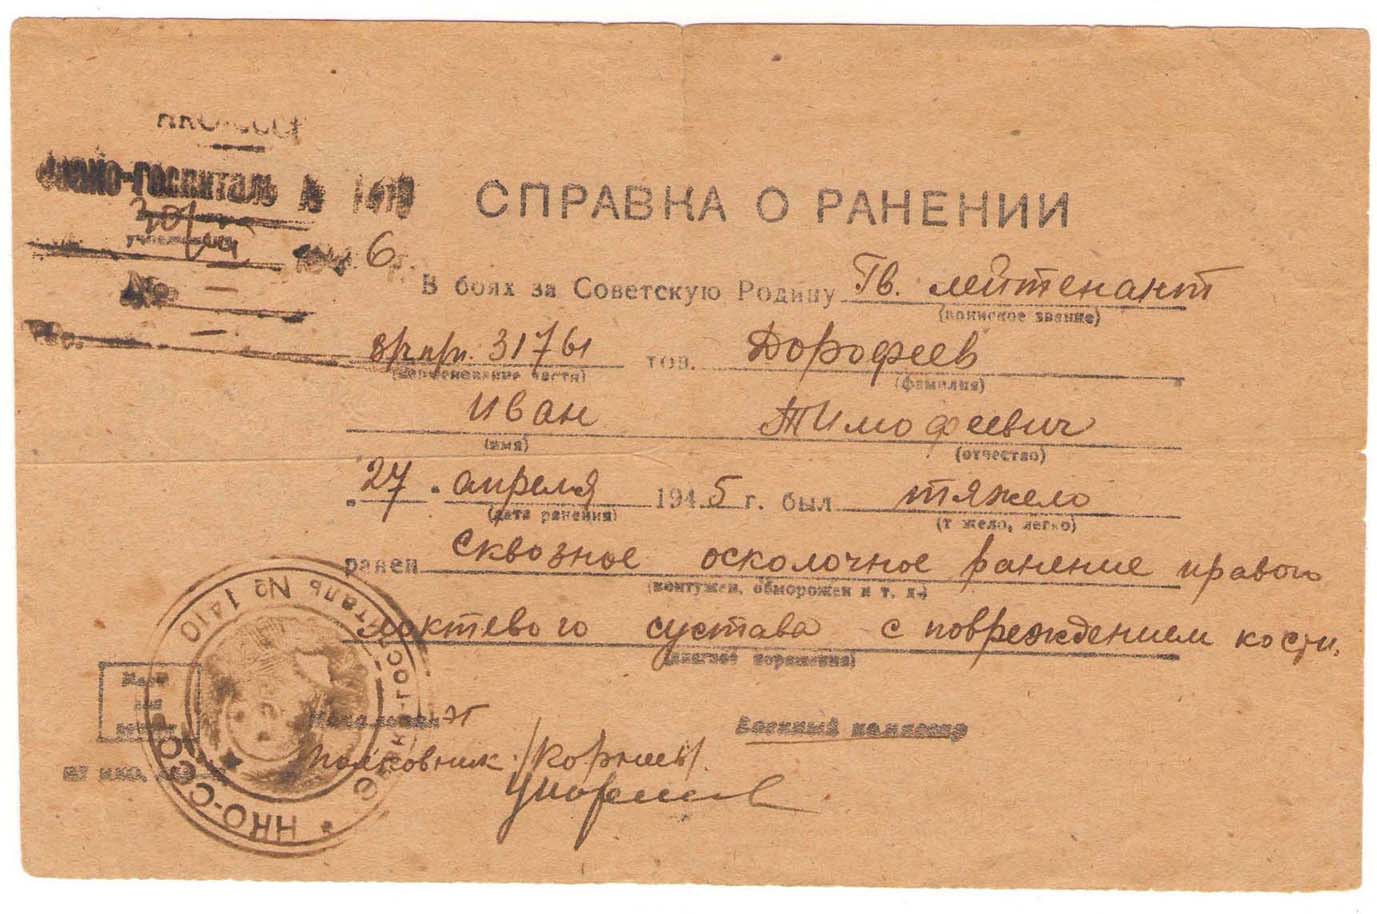 НКО-СССР
Эвако-госпиталь № 1410
30/
194 6 г.
№ —
СПРАВКА О РАНЕНИИ
В боях за Советскую Родину Гв. лейтенант
(воинское звание)
31761 тов. Дорофеев
(наименование части) (фамилия)
Иван Тимофеевич
(имя) (отчество)
"27" апреля 1945 г. был тяжело
(дата ранения) (т жело, легко)
ранен Сквозное осколочное ранение правого
(контужен, обморожен и т. д.)
локтевого сустава с повреждением кости.
поражения)
Военный комиссар
Полковник /Корнев/
НКО-СССР * госпиталь № 1410 *